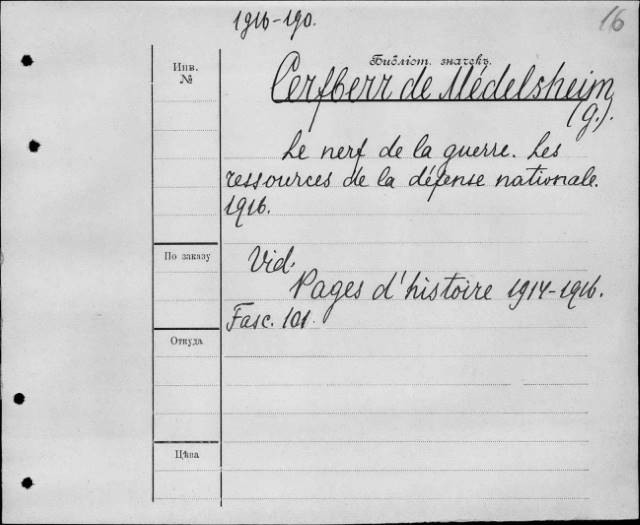 1916-190.
16
Инв.
№
Библіот. значекъ.
Cerfberr de Médelsheim
(G.).
Le nerf de la guerre. Les
ressources de la défense nationale.
1916.
По заказу
Vid.
Pages d'histoire 1914-1916.
Fasc. 101.
Откуда
Цѣна